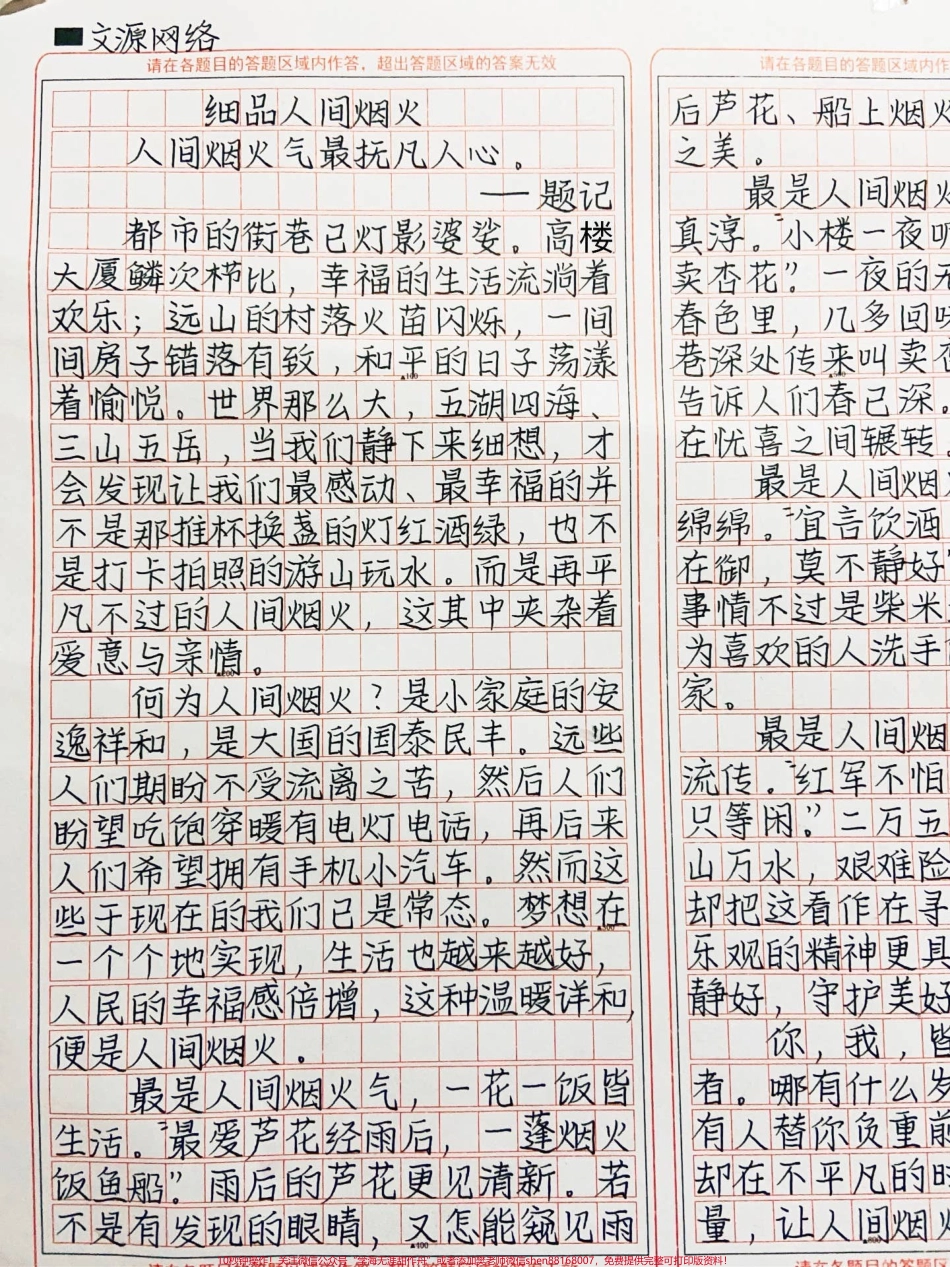 文源网络
请在各题目的答题区域内作答，超出答题区域的答案无效
细品人间烟火
人间烟火气最抚凡人心。
——题记
都市的街巷已灯影婆娑。高楼
大厦鳞次栉比，幸福的生活流淌着
欢乐；远山的村落火苗闪烁，一间
间房子错落有致，和平的日子荡漾
▲100
着愉悦。世界那么大，五湖四海、
三山五岳，当我们静下来细想，才
会发现让我们最感动、最幸福的并
不是那推杯换盏的灯红酒绿，也不
是打卡拍照的游山玩水。而是再平
凡不过的人间烟火，这其中夹杂着
爱意与亲情。
▲200
何为人间烟火？是小家庭的安
逸祥和，是大国的国泰民丰。远些
人们期盼不受流离之苦，然后人们
盼望吃饱穿暖有电灯电话，再后来
人们希望拥有手机小汽车。然而这
些于现在的我们已是常态。梦想在
▲300
一个个地实现，生活也越来越好，
人民的幸福感倍增，这种温暖详和，
便是人间烟火。
最是人间烟火气，一花一饭皆
生活。“最爱芦花经雨后，一蓬烟火
饭鱼船”。雨后的芦花更见清新。若
不是有发现的眼睛，又怎能窥见雨
▲400
请在各题目的答题区域内作
后芦花、船上烟火
之美。
最是人间烟火
真淳。“小楼一夜听
卖杏花”。一夜的无
春色里，几多回味
巷深处传来叫卖
告诉人们春已深。
在忧喜之间辗转。
最是人间烟
绵绵。“宜言饮酒
在御，莫不静好
事情不过是柴米
为喜欢的人洗手
家。
最是人间烟
流传。“红军不怕
只等闲”。二万五
山万水，艰难险
却把这看作在寻
乐观的精神更具
静好，守护美好
你，我，皆
者。哪有什么岁
有人替你负重前
却在不平凡的时
量，让人间烟火
▲800